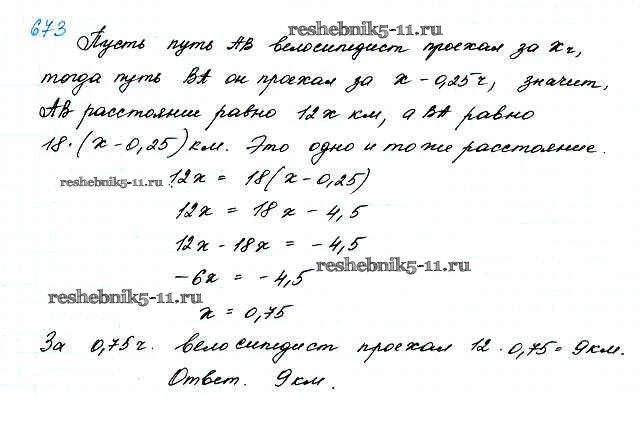 673
reshebnik5-11.ru
Пусть путь AB велосипедист проехал за x ч,
тогда путь BA он проехал за x - 0,25 ч, значит,
AB расстояние равно 12x км, а BA равно
18·(x - 0,25) км. Это одно и тоже расстояние.
reshebnik5-11.ru
12x = 18(x - 0,25)
12x = 18x - 4,5
12x - 18x = -4,5
reshebnik5-11.ru
-6x = -4,5
reshebnik5-11.ru
x = 0,75
За 0,75 ч. велосипедист проехал 12 · 0,75 = 9 км.
Ответ. 9 км.